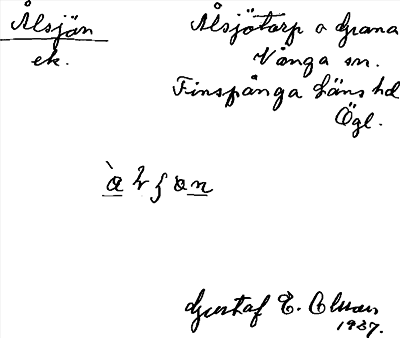 Ålsjön
ek.
Ålsjötorp o Grana
Vånga sn.
Finspånga läns hd
Ögl.
Gustaf E. Olsson
1937.